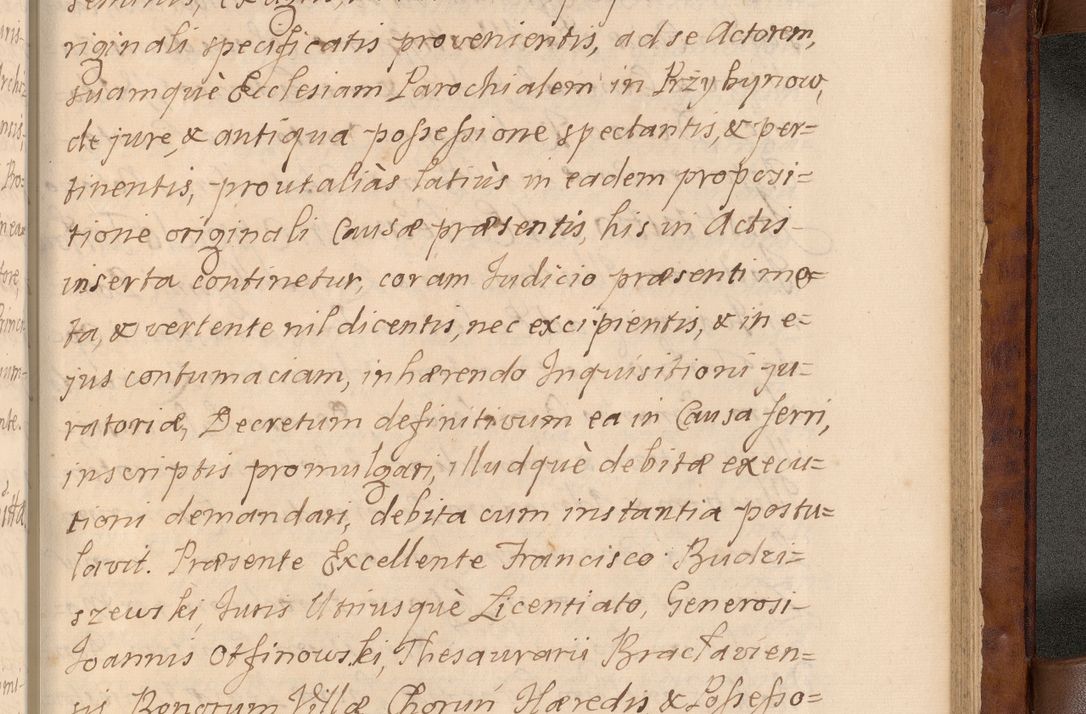 riginali specificatis provenientis, ad se Actorem,
suamquè Ecclesiam Parochialem in Przybynow,
de jure, & antiqua possessione spectantis, & per=
tinentis, prout aliàs latiùs in eadem proposi=
tione originali Causæ præsentis, his in Actis
inserta continetur, coram Iudicio præsenti mo=
ta, & vertente nil dicentis, nec excipientis, & in e=
jus contumaciam, inhærendo Inquisitioni ju=
ratoriæ, Decretum definitivum ea in Causa ferri,
inscriptis promulgari, illudquè debitæ execu=
tioni demandari, debita cum instantia postu=
lavit. Præsente Excellente Francisco Budzi=
szewski, Iuris Utriusquè Licentiato, Generosi
Ioannis Otfinowski, Thesaurarii Bractavien=
sis Bonorum Villæ Choruń Hæredis & Possesso=